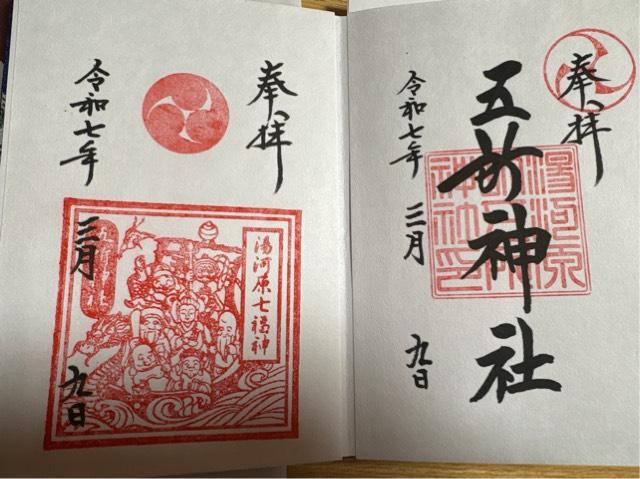 奉拝
五所神社
湯河原
神社印
令和七年 三月 九日
奉拝
湯河原七福神
令和七年 三月 九日